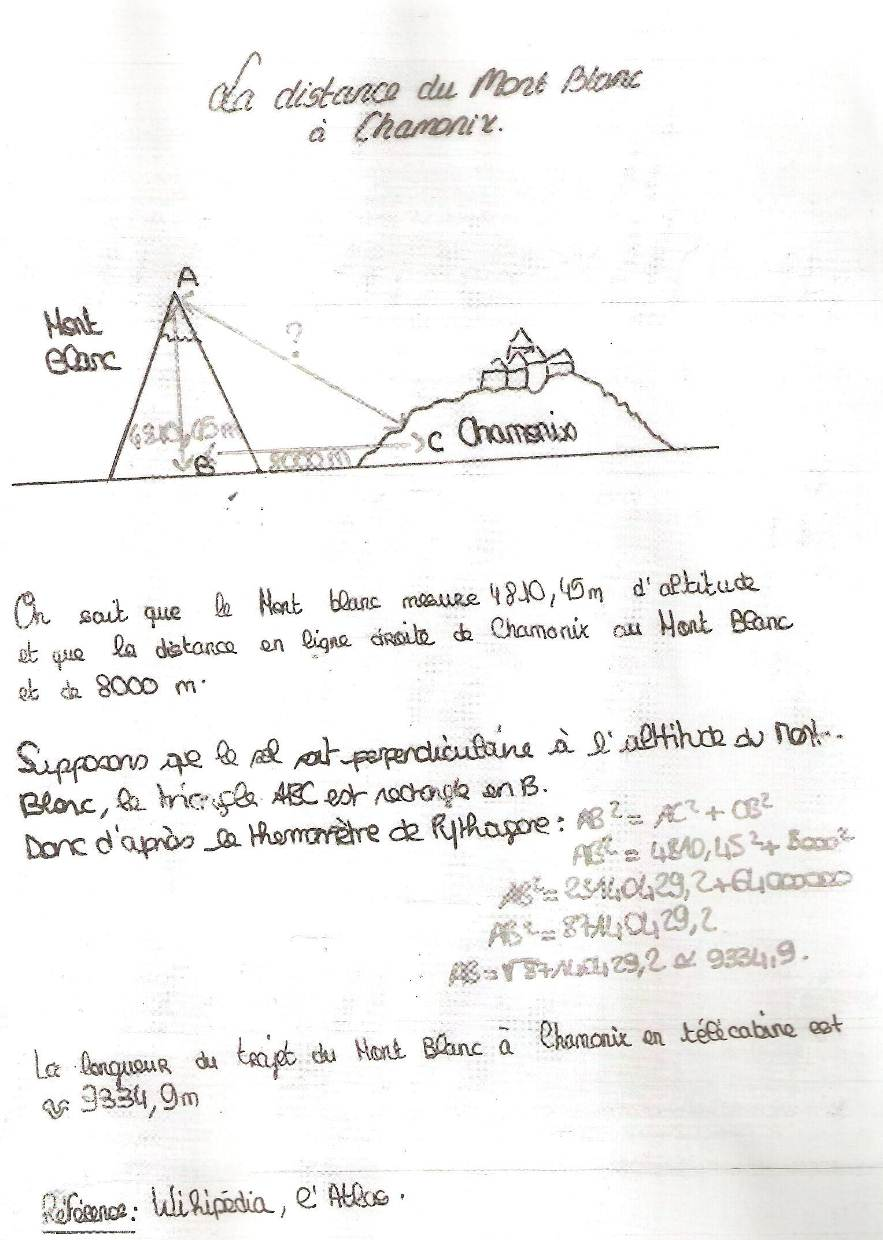 La distance du Mont Blanc
à Chamonix.
A
Mont
Blanc
?
4810,45m
B
8000 m
C Chamonix
On sait que le Mont blanc mesure 4810,45m d'altitude
et que la distance en ligne droite de Chamonix au Mont Blanc
et de 8000 m.
Supposons qe le sol soit perpendiculaire à l'alttitude du Mont
Blanc, le triangle ABC est rectangle en B.
Donc d'après le de Pythagore: AB² = AC² + CB²
AB² = 4810,45² + 8000²
AB² = 23140429,2 + 64000000
AB² = 87140429,2
AB = √87140429,2 ≃ 9334,9.
La longueur du trajet du Mont Blanc à Chamonix en télécabine est
≈ 9334,9m
Réference: Wikipédia, l'Atlas.